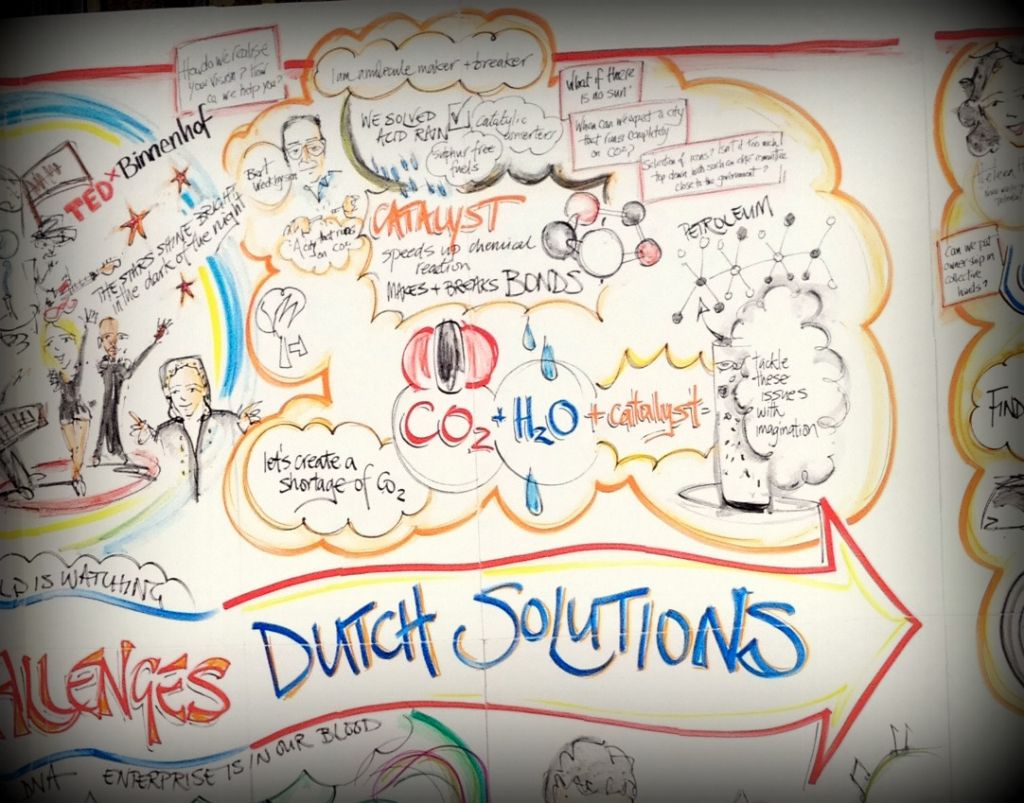 How do we realise
your vision? How
ca we help you?
TEDxBinnenhof
THE STARS SHINE BRIGHT
in the dark of the night
I am a molecule maker + breaker
WE SOLVED
ACID RAIN
Catalytic
converters
Sulphur free
fuels
Bert
Weckhuysen
"A city that runs
on CO2"
CATALYST
speeds up chemical
reaction
MAKES + BREAKS BONDS
What if there
is no sun?
When can we expect a city
that runs completely
on CO2?
Selection of icons? Isn't it too much
top down with such an elite committee
close to the government?
PETROLEUM
CO2 + H2O + catallyst =
tackle
these
issues
with
imagination
let's create a
shortage of CO2
Can we put
ownership in
collective
hands?
FIND
LD IS WATCHING
ALLENGES
DUTCH SOLUTIONS
DNA ENTERPRISE IS IN OUR BLOOD